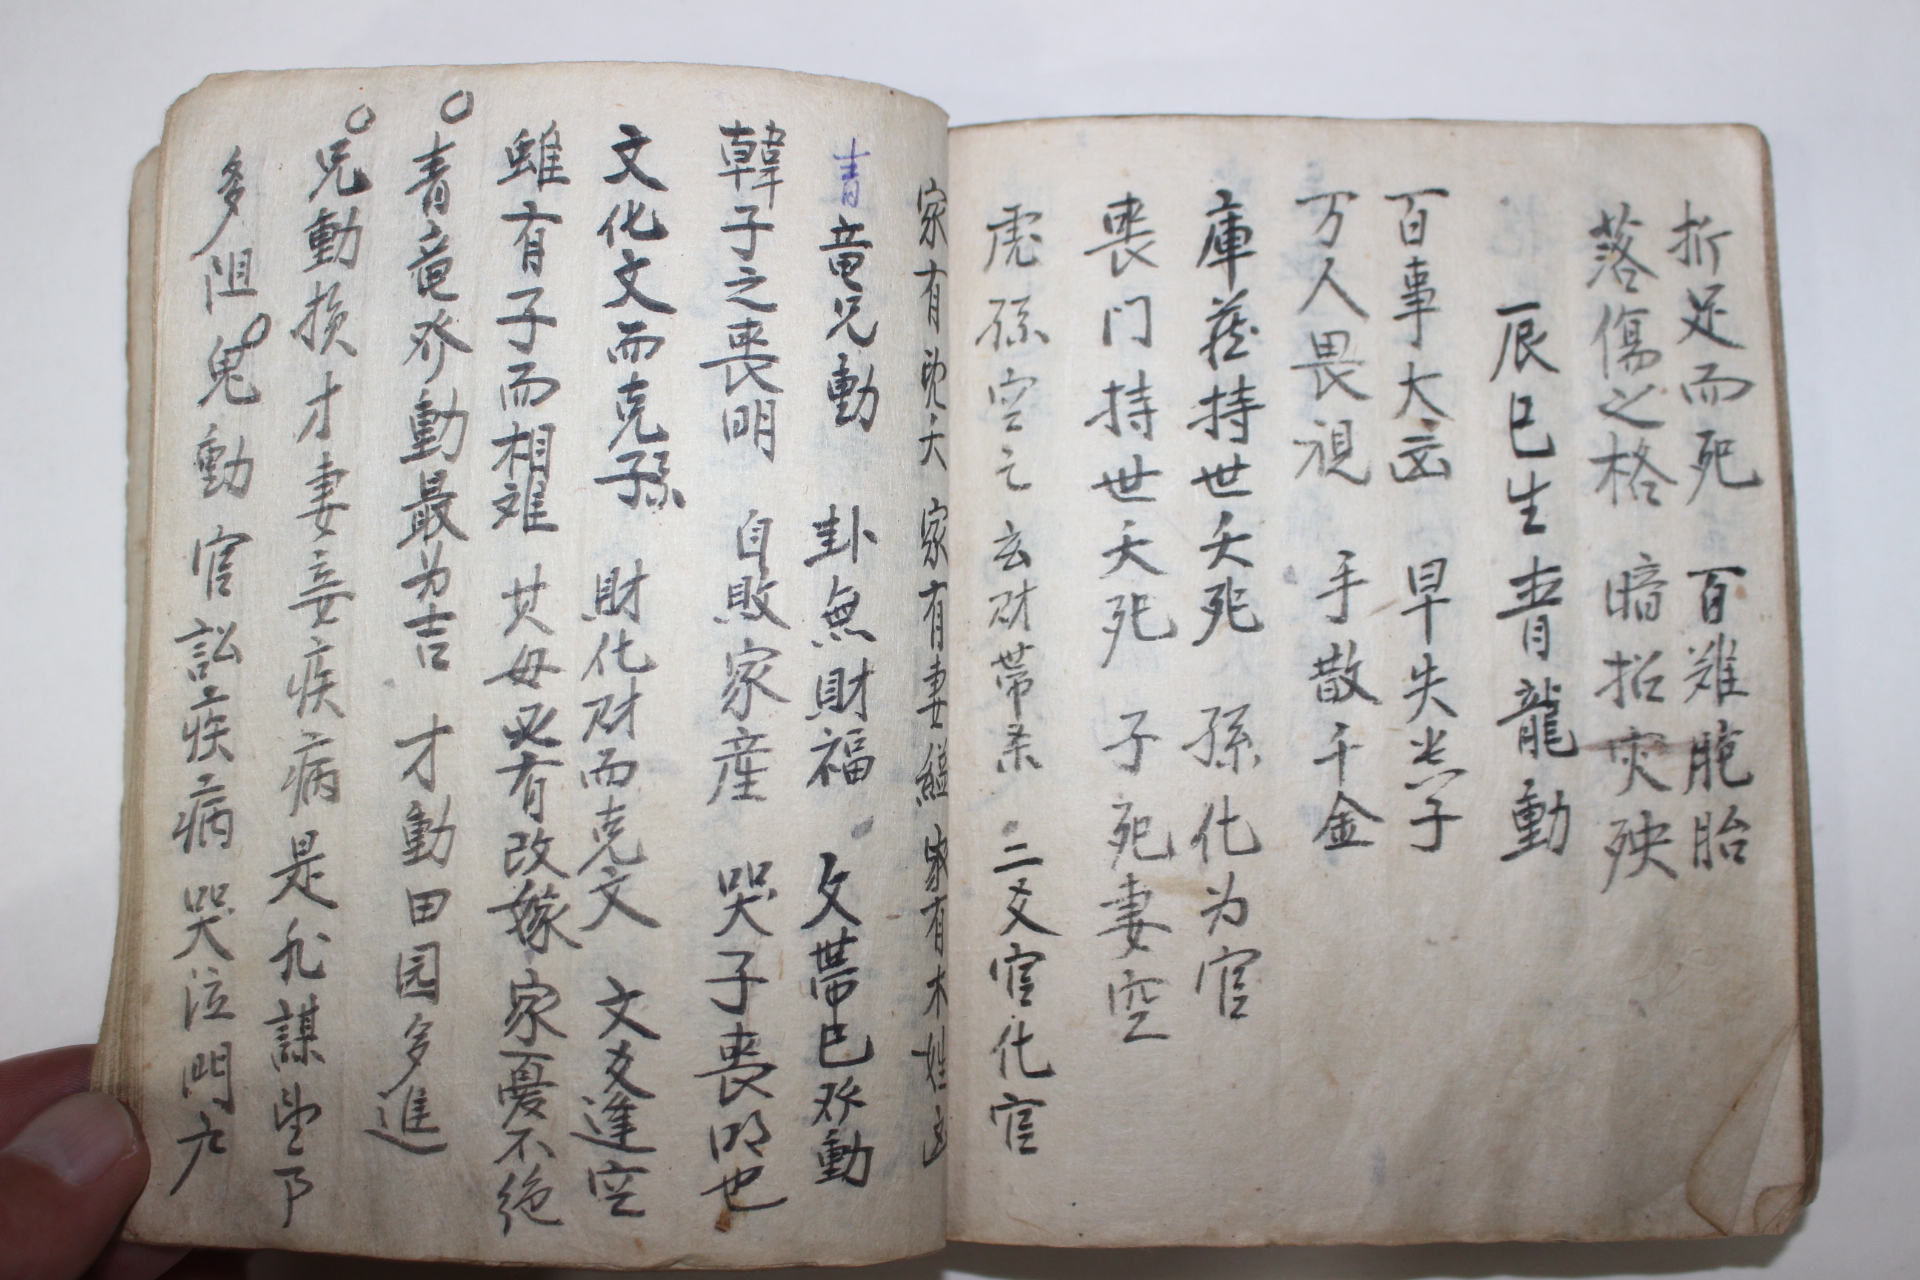 折足而死 百難胞胎
落傷之格 暗招灾殃
辰巳生青龍動
百事大凶 早失光子
万人畏視 手散千金
庫藏持世夭死 孫化为官
喪门持世夭死 子死妻空
虎孫空之玄財帯 三爻官化官
家有 犬 家有妻縊 家有木姓凶
青竜兄動 卦無財福 文帯巳発動
韓子之喪明 自敗家産 哭子喪明也
文化文而克孫 財化財而克文 文爻逢空
雖有子而相难 其母必有改嫁 家憂不绝
青竜発動最为吉 才動田园多進
兄動損才妻妾疾病是非謀望卩
多阻鬼動 官訟疾病 哭泣門户